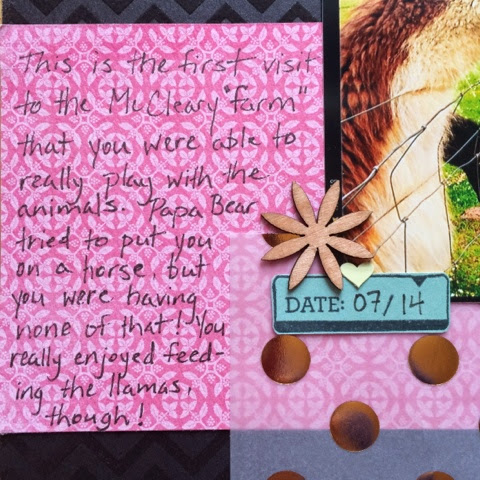 This is the first visit
to the McCleary "farm"
that you were able to
really play with the
animals. Papa Bear
tried to put you
on a horse, but
you were having
none of that! You
really enjoyed feed-
ing the llamas,
though!
DATE: 07/14